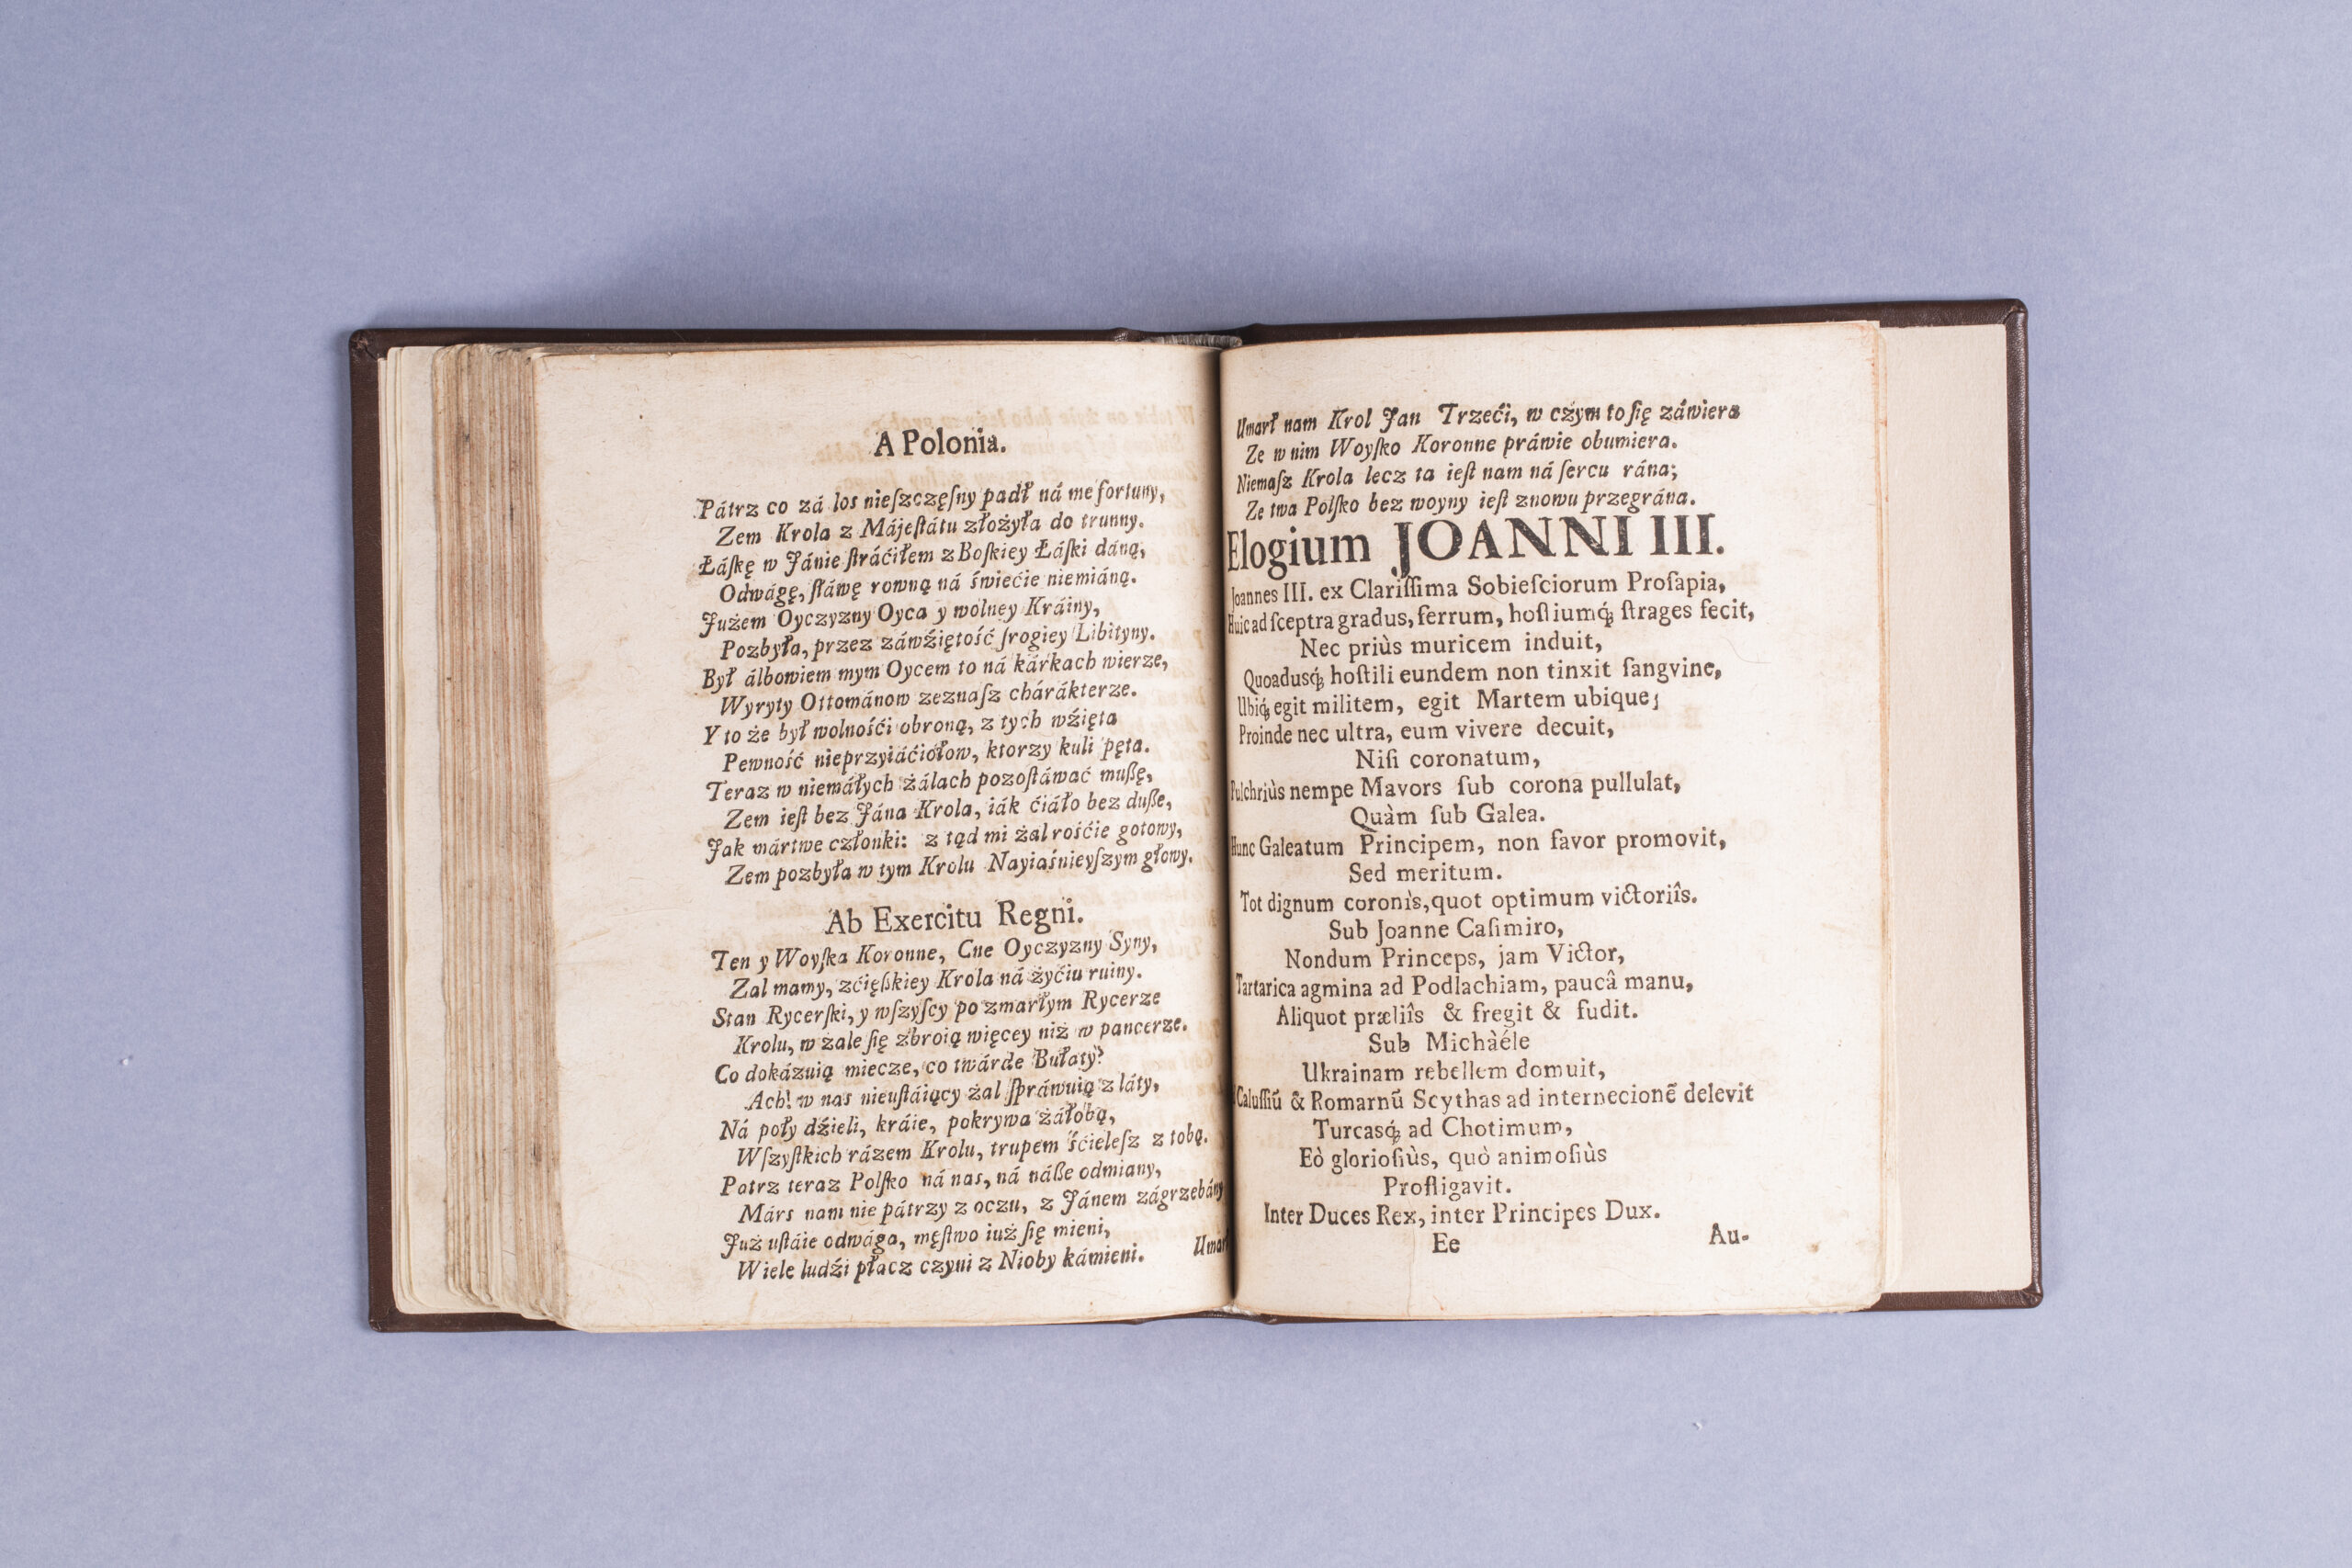 A Polonia.
Pátrz co zá los nieſzczęſny padł ná me fortuny,
Zem Krola z Májeſtátu złożyła do trunny.
Łáſkę w Jánie ſtráćiłem z Boſkiey Łáſki dáną,
Odwágę, ſłáwę rowną ná świećie niemiáną.
Jużem Oyczyzny Oyca y wolney Kráiny,
Pozbyła, przez záwźiętość ſrogiey Libityny.
Był álbowiem mym Oycem to ná kárkach wierze,
Wyryty Ottománow zeznaſz chárákterze.
Y to że był wolnośći obroną, z tych wźięta
Pewność nieprzyiáćiołow, ktorzy kuli pęta.
Teraz w niemáłych żálach pozoſtáwać mußę,
Zem ieſt bez Jána Krola, iák ćiáło bez duße,
Jak mártwe członki: z tąd mi żal rośćie gotowy,
Zem pozbyła w tym Krolu Nayiaśnieyſzym głowy.
Ab Exercitu Regni.
Ten y Woyſka Koronne, Cne Oyczyzny Syny,
Zal mamy, zćięßkiey Krola ná żyćiu ruiny.
Stan Rycerſki, y wſzyſcy po zmarłym Rycerze
Krolu, w zale ſię zbroią więcey niż w pancerze.
Co dokázuią miecze, co twárde Bułaty?
Ach! w nas nieuſtáiący żal ſpráwuią z láty,
Ná poły dźieli, kráie, pokrywa żáłobą,
Wſzyſtkich rázem Krolu, trupem śćieleſz z tobą.
Patrz teraz Polſko ná nas, ná náße odmiany,
Márs nam nie pátrzy z oczu, z Jánem zágrzebány
Już uſtáie odwága, męſtwo iuż ſię mieni,
Wiele ludźi płacz czyni z Nioby kámieni.
Umarł
Umarł nam Krol Jan Trzeći, w czym to ſię záwiera
Ze w nim Woyſko Koronne práwie obumiera.
Niemaſz Krola lecz ta ieſt nam ná ſercu rána;
Ze twa Polſko bez woyny ieſt znowu przegrána.
Elogium JOANNI III.
Joannes III. ex Clariſſima Sobieſciorum Proſapia,
Huic ad ſceptra gradus, ferrum, hoſtiumq́; ſtrages fecit,
Nec priùs muricem induit,
Quoadusq́; hoſtili eundem non tinxit ſangvine,
Ubiq́; egit militem, egit Martem ubique;
Proinde nec ultra, eum vivere decuit,
Niſi coronatum,
Pulchriùs nempe Mavors ſub corona pullulat,
Quàm ſub Galea.
Hunc Galeatum Principem, non favor promovit,
Sed meritum.
Tot dignum coronis, quot optimum victoriîs.
Sub Joanne Caſimiro,
Nondum Princeps, jam Victor,
Tartarica agmina ad Podlachiam, paucâ manu,
Aliquot præliîs & fregit & fudit.
Sub Michàéle
Ukrainam rebellem domuit,
Caluſſiũ & Romarnũ Scythas ad internecionẽ delevit
Turcasq́; ad Chotimum,
Eò glorioſiùs, quò animoſiùs
Profligavit.
Inter Duces Rex, inter Principes Dux.
Ee
Au-